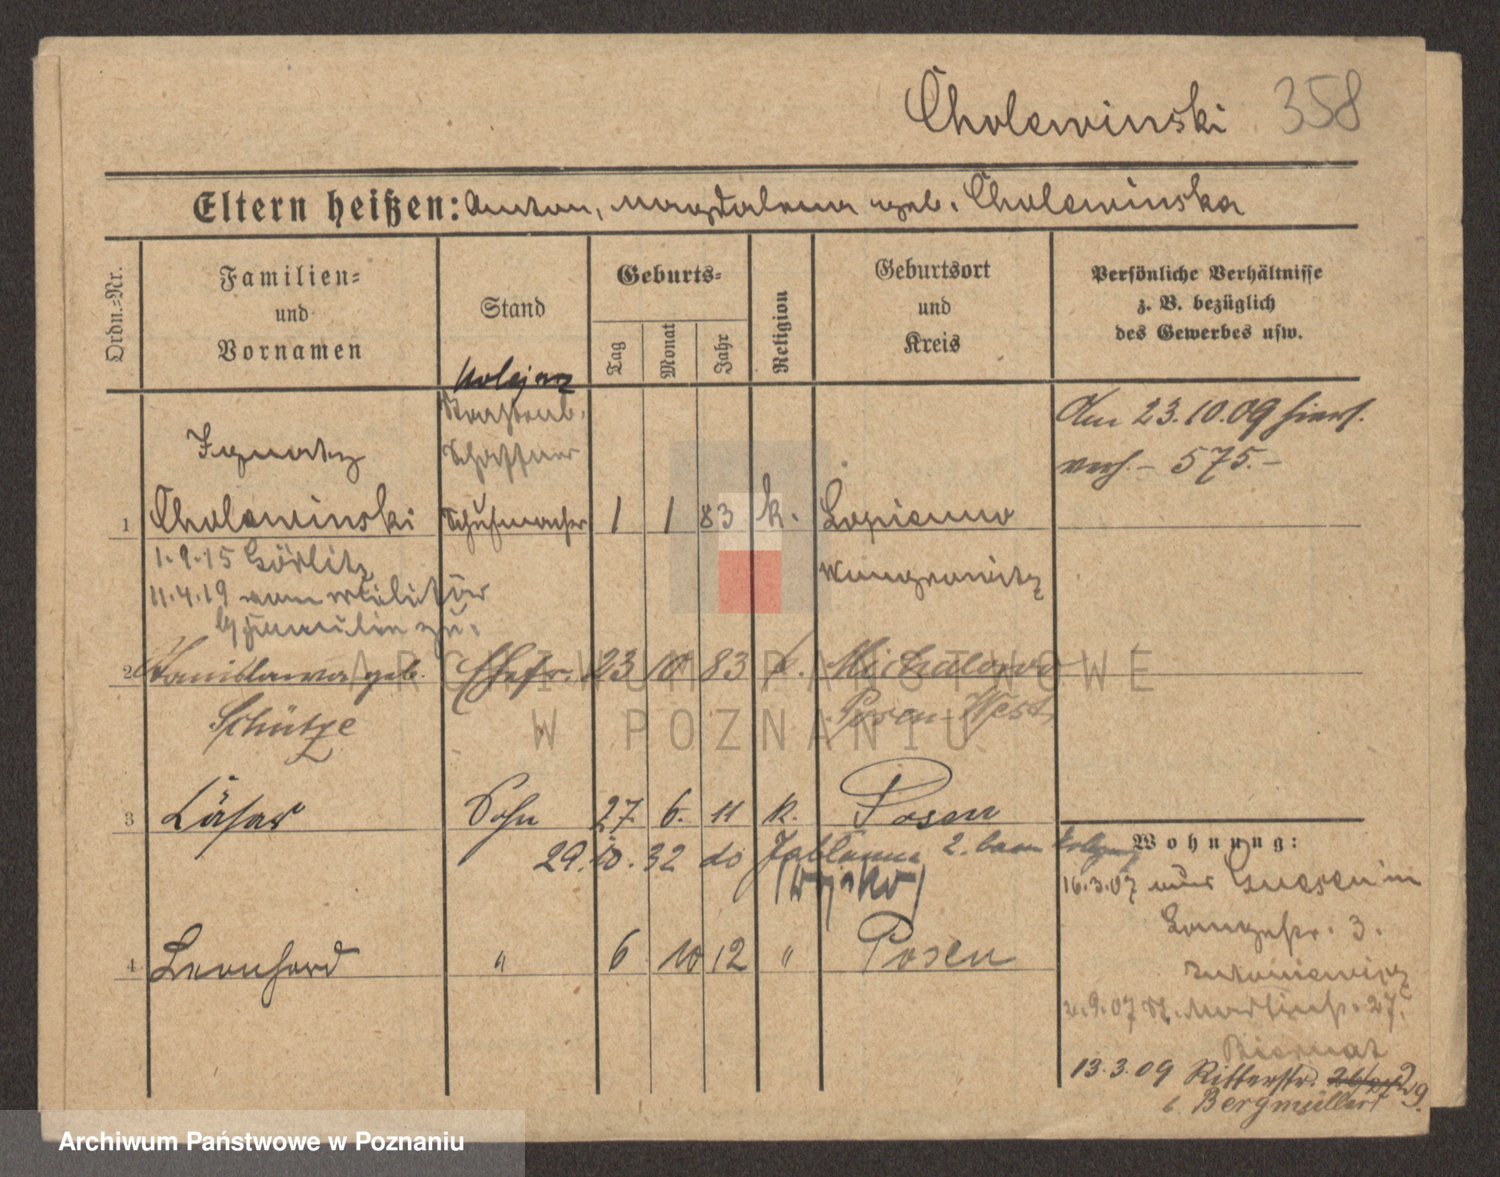 Cholewinski 358
Eltern heißen: Anton, Magdalena geb. Cholewinska
Ordn.-Nr.
Familien-
und
Vornamen
Stand
Geburts-
Tag
Monat
Jahr
Religion
Geburtsort
und
Kreis
Persönliche Verhältnisse
z. B. bezüglich
des Gewerbes usw.
kolejarz
Straßenb.
Schaffner
Am 23.10.09 hiers.
verh. – 575.–
Ignatz
1 Cholewinski Schuhmacher 1 1 83 k. Lopienno
Wongrowitz
1.9.15 Görlitz
11.4.19 vom Militär
2 Stanislawa geb. Ehefr. 23 10 83 k. Michalowo
Schütze Posen West
3 Cäsar Sohn 27 6. 11 k. Posen
29.10.32 do Jablonna
(Wojsko)
Wohnung:
16.3.07 aus Gnesen in
Langestr. 3.
4 Leonhard " 6 10 12 " Posen
2.9.07 St. Martinstr. 27.
Biernat
13.3.09 Ritterstr. 29.
b. Bergmüller
ARCHIWUM PAŃSTWOWE
W POZNANIU
Archiwum Państwowe w Poznaniu